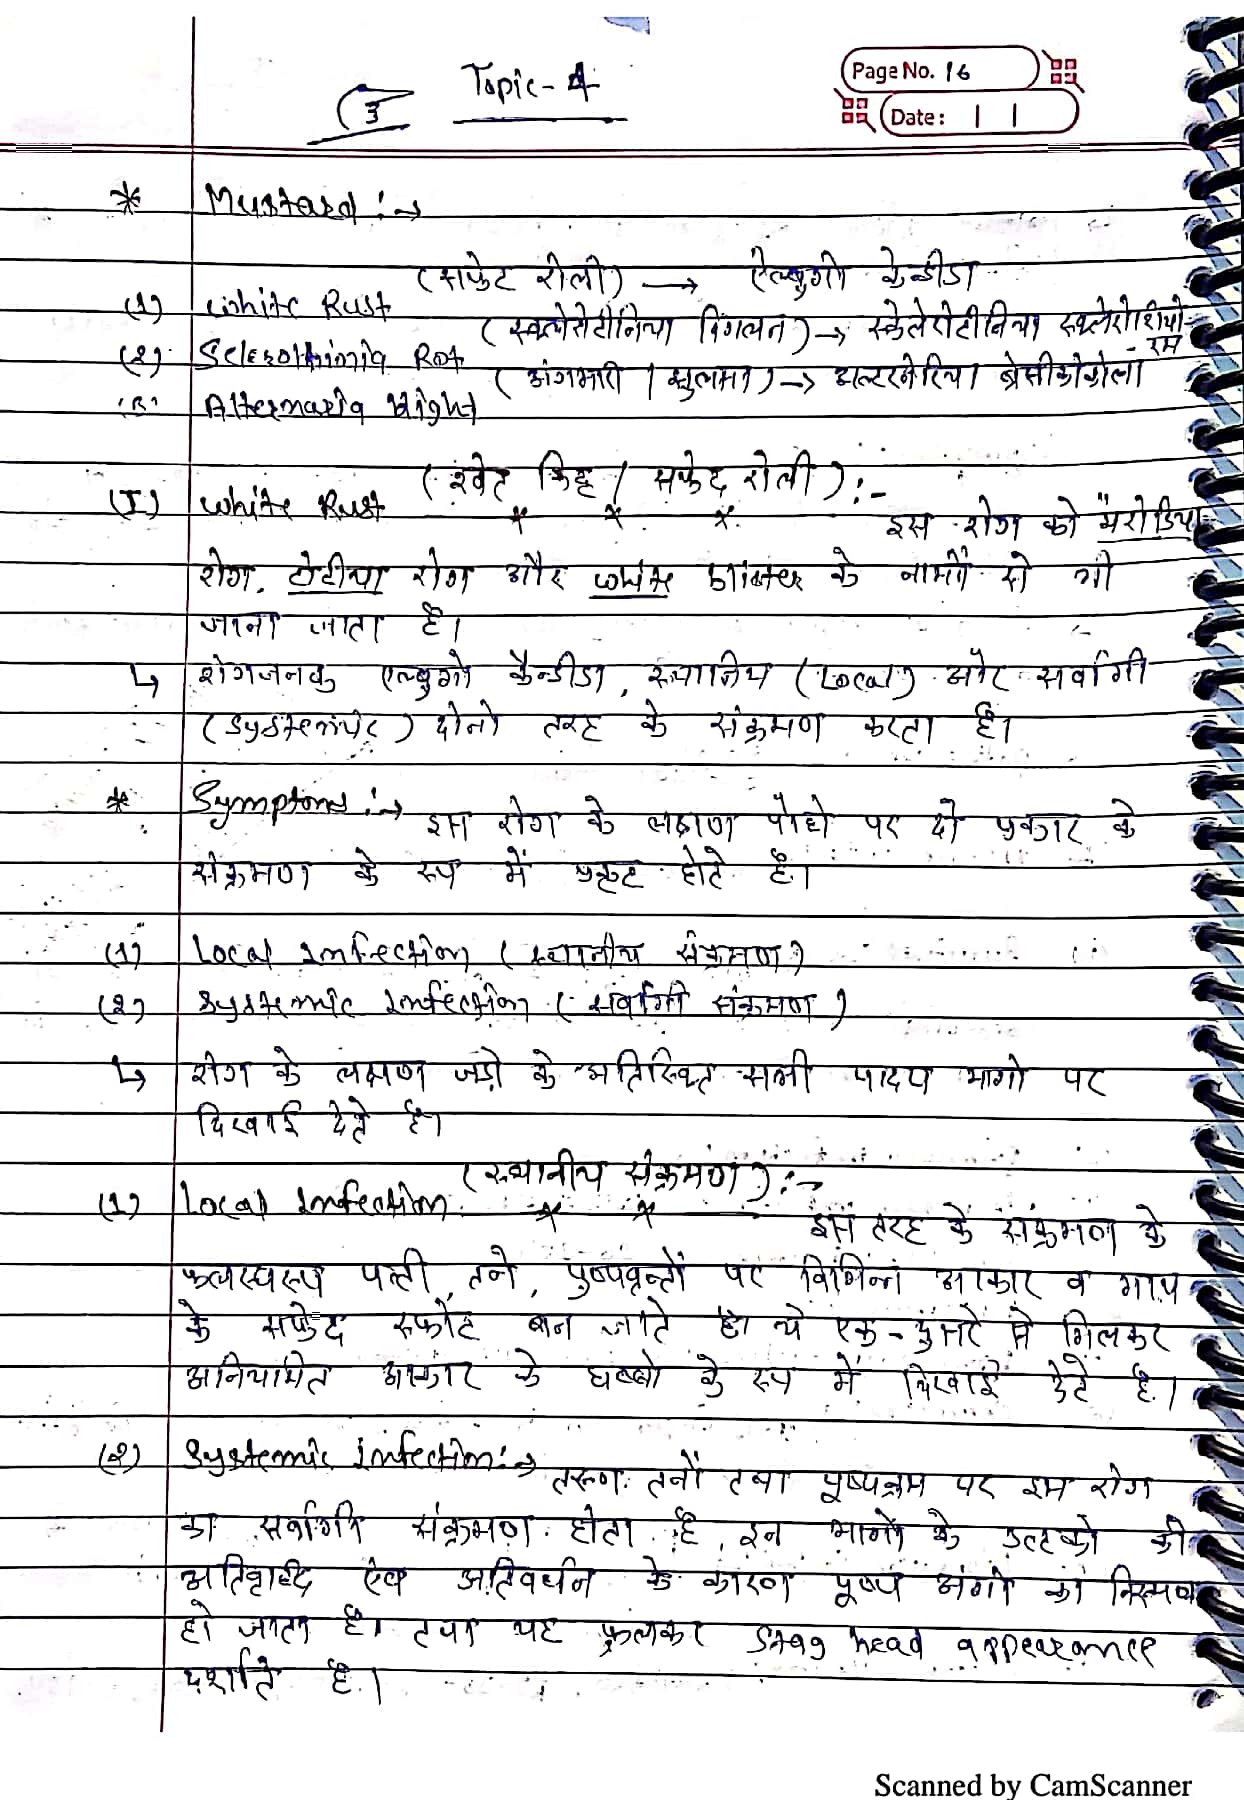 3 Topic-4
Page No. 16
Date: | |
* Mustard :→
(1) White Rust (सफेट रोली) → ऐल्बुगो केन्डीडा
(2) Sclerothinia Rot (स्क्लेरोटीनिया विगलन) → स्केलेरोटीनिया स्क्लेरोशियो-
रम
(3) Alternaria blight (अंगमारी / झुलसा) → अल्टरनेरिया ब्रेसीकोला
(I) White Rust (श्वेट किट्ट / सफेद रोली) :-
इस रोग को मैरोडिया
रोग, टोटीया रोग और white blister के नामों से भी
जाना जाता है।
↳ रोगजनक एल्बुगो कैन्डीडा, स्थानिय (Local) और सर्वागी
(Systemic) दोनो तरह के संक्रमण करता है।
* Symptoms :→ इस रोग के लक्षण पौधो पर दो प्रकार के
संक्रमण के रूप में प्रकट होते है।
(1) Local Infection (स्थानीय संक्रमण)
(2) Systemic Infection (सर्वागी संक्रमण)
↳ रोग के लक्षण जड़ो के अतिरिक्त सभी पादप भागो पर
दिखाई देते है।
(1) Local Infection (स्थानीय संक्रमण) :→
इस तरह के संक्रमण के
फलस्वरूप पत्ती, तने, पुष्पवृन्तों पर विभिन्न आकार व माप
के सफेद स्फोट बान जाते है। ये एक-दुसरे से मिलकर
अनियामित आकार के धब्बो के रूप में दिखाई देते है।
(2) Systemic Infection :→ तरूण तनों तथा पुष्पक्रम पर इस रोग
का सर्वागी संक्रमण होता है, इन भागो के उत्तको की
अतिवृद्धि ऐव अतिवर्धन के कारण पुष्प अंगो का
हो जाता है। तथा यह फुलकर Stag head appearance
दर्शाते है।
Scanned by CamScanner